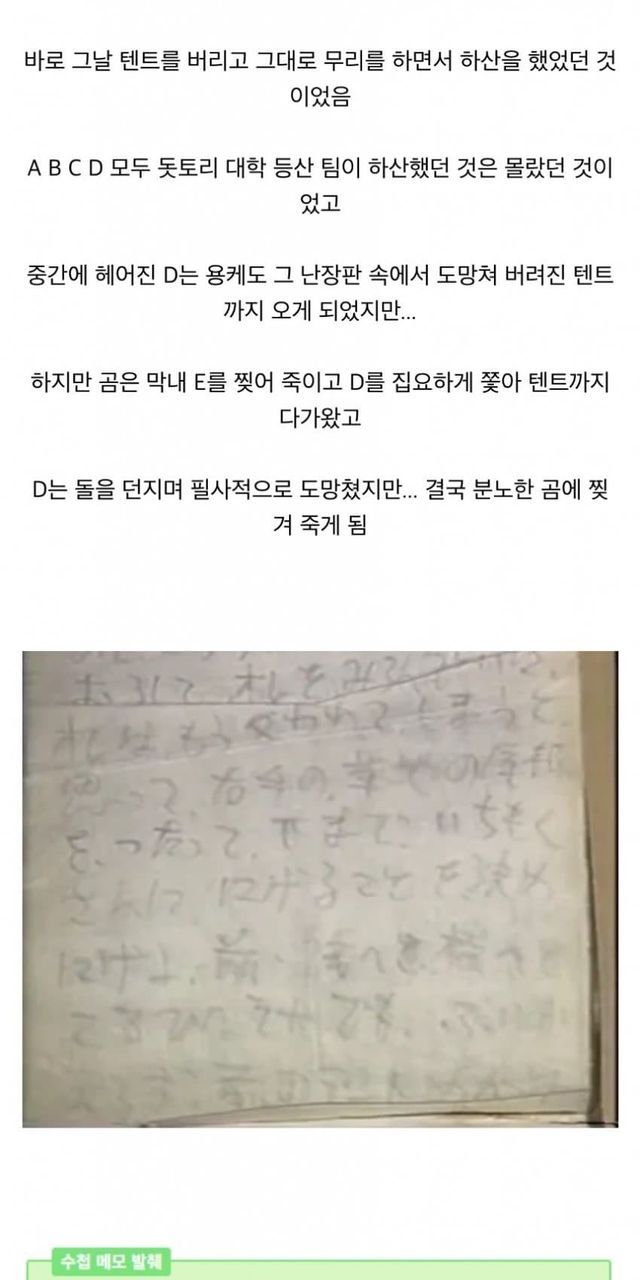 바로 그날 텐트를 버리고 그대로 무리를 하면서 하산을 했었던 것
이었음
A B C D 모두 돗토리 대학 등산 팀이 하산했던 것은 몰랐던 것이
었고
중간에 헤어진 D는 용케도 그 난장판 속에서 도망쳐 버려진 텐트
까지 오게 되었지만...
하지만 곰은 막내 E를 찢어 죽이고 D를 집요하게 쫓아 텐트까지
다가왔고
D는 돌을 던지며 필사적으로 도망쳤지만... 결국 분노한 곰에 찢
겨 죽게 됨
思って、右手の、
を、つたって、下まで、いちもく
さんに、にげることを決め
수첩 메모 발췌